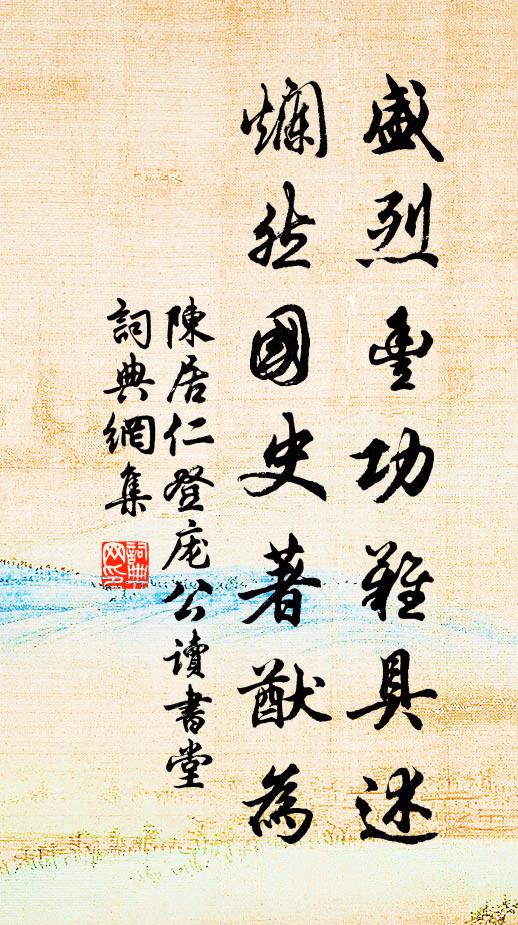 盛烈豐功難具述
爛然國史著猷為
陳居仁登庞公讀書堂
詞典網集
詞典
网印